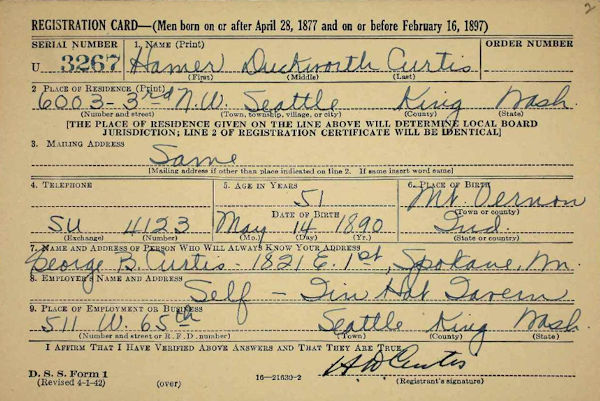 2
REGISTRATION CARD—(Men born on or after April 28, 1877 and on or before February 16, 1897)
SERIAL NUMBER 1. NAME (Print) ORDER NUMBER
U 3267 Hamer Duckworth Curtis
(First) (Middle) (Last)
2. PLACE OF RESIDENCE (Print)
6003-3rd N.W. Seattle King Wash.
(Number and street) (Town, township, village, or city) (County) (State)
[THE PLACE OF RESIDENCE GIVEN ON THE LINE ABOVE WILL DETERMINE LOCAL BOARD
JURISDICTION; LINE 2 OF REGISTRATION CERTIFICATE WILL BE IDENTICAL]
3. MAILING ADDRESS
Same
[Mailing address if other than place indicated on line 2. If same insert word same]
4. TELEPHONE 5. AGE IN YEARS 6. PLACE OF BIRTH
51 Mt. Vernon
DATE OF BIRTH (Town or county)
SU 4123 May 14 1890 Ind.
(Exchange) (Number) (Mo.) (Day) (Yr.) (State or country)
7. NAME AND ADDRESS OF PERSON WHO WILL ALWAYS KNOW YOUR ADDRESS
George B. Curtis - 1821 E. 1st, Spokane, Wn.
8. EMPLOYER'S NAME AND ADDRESS
Self - Tin Hat Tavern
9. PLACE OF EMPLOYMENT OR BUSINESS
511 W. 65th Seattle King Wash.
(Number and street or R. F. D. number) (Town) (County) (State)
I AFFIRM THAT I HAVE VERIFIED ABOVE ANSWERS AND THAT THEY ARE TRUE.
H D Curtis
D. S. S. Form 1
(Revised 4-1-42) (over) 16—21630-2 (Registrant's signature)